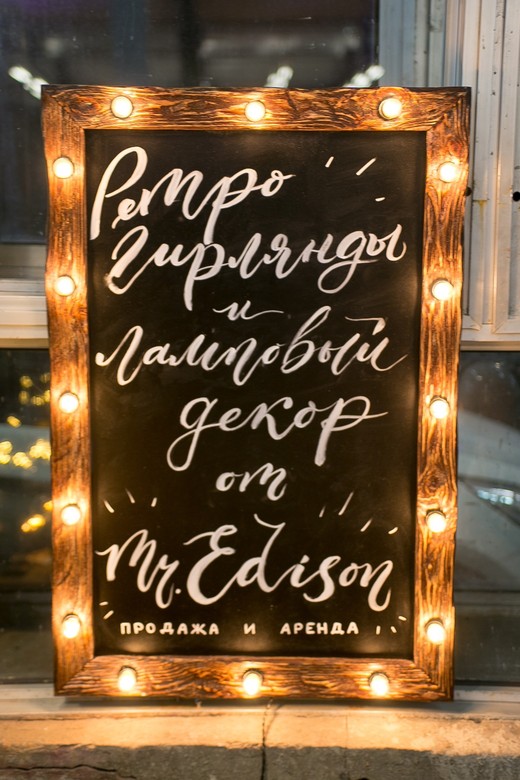 Ретро
Гирлянды
и
ламповый
декор
от
Mr. Edison
ПРОДАЖА И АРЕНДА